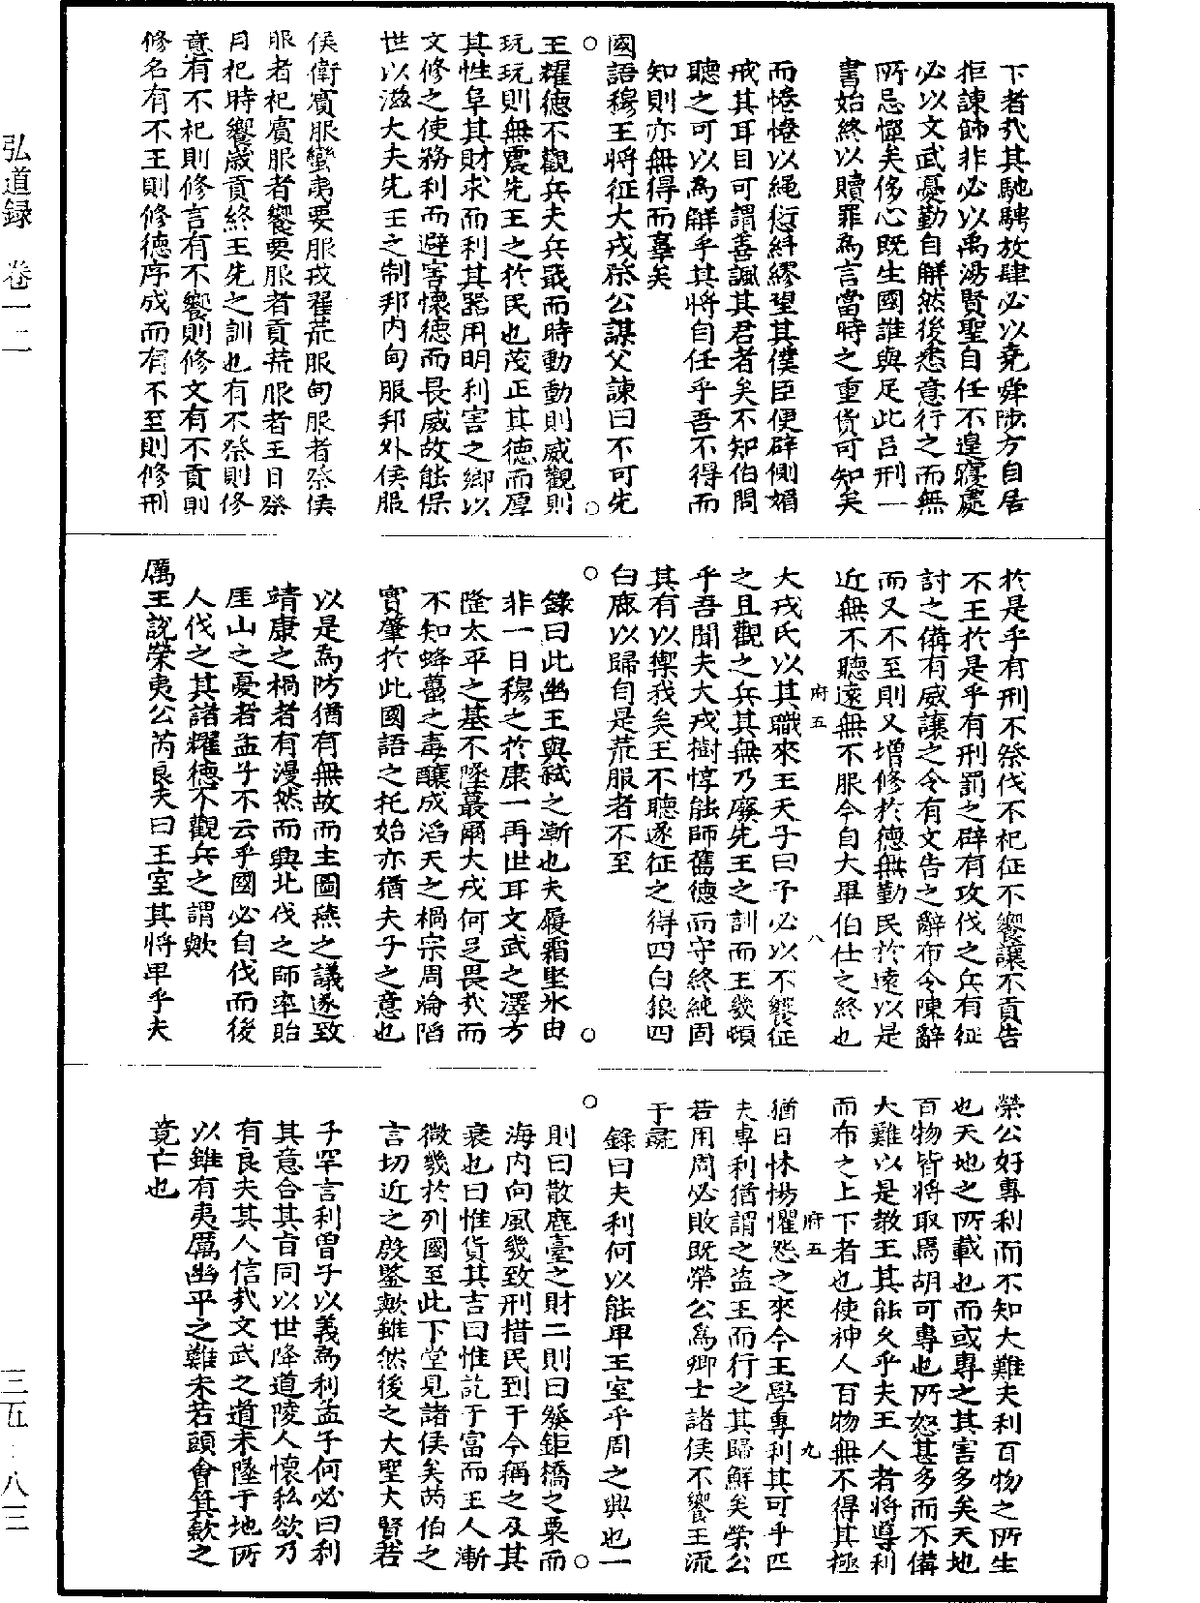 下者哉其馳騁放肆必以堯舜陟方自居
拒諫飾非必以禹湯賢聖自任不遑寢處
必以文武憂勤自解然後悉意行之而無
所忌憚矣侈心既生國誰與足此呂刑一
書始終以贖罪為言當時之重貨可知矣
而惓惓以繩愆糾繆望其僕臣便辟側媚
戒其耳目可謂善諷其君者矣不知伯冏
聽之可以為解乎其將自任乎吾不得而
知則亦無得而辜矣
國語穆王將征犬戎祭公謀父諫曰不可先
王耀德不觀兵夫兵戢而時動動則威觀則
玩玩則無震先王之於民也茂正其德而厚
其性阜其財求而利其器用明利害之鄉以
文修之使務利而避害懷德而畏威故能保
世以滋大夫先王之制邦内甸服邦外侯服
侯衛賓服蠻夷要服戎翟荒服甸服者祭侯
服者祀賓服者饗要服者貢荒服者王日祭
月祀時饗歲貢終王先之訓也有不祭則修
意有不祀則修言有不饗則修文有不貢則
修名有不王則修德序成而有不至則修刑
於是乎有刑不祭伐不祀征不饗讓不貢告
不王於是乎有刑罰之辟有攻伐之兵有征
討之備有威讓之令有文告之辭布令陳辭
而又不至則又增修於德無勤民於遠以是
近無不聽遠無不服今自大畢伯仕之終也
府五
八
犬戎氏以其職來王天子曰予必以不饗征
之且觀之兵其無乃廢先王之訓而王幾頓
乎吾聞夫犬戎樹惇能師舊德而守終純固
其有以禦我矣王不聽遂征之得四白狼四
白鹿以歸自是荒服者不至
錄曰此幽王與弒之漸也夫履霜堅氷由
非一日穆之於康一再世耳文武之澤方
隆太平之基不墜蕞爾犬戎何足畏哉而
不知蜂蠆之毒釀成滔天之禍宗周淪陷
實肇於此國語之托始亦猶夫子之意也
以是為防猶有無故而主圖燕之議遂致
靖康之禍者有漫然而興北伐之師率貽
厓山之憂者孟子不云乎國必自伐而後
人伐之其諸耀德不觀兵之謂歟
厲王說榮夷公芮良夫曰王室其將卑乎夫
榮公好專利而不知大難夫利百物之所生
也天地之所載也而或專之其害多矣天地
百物皆將取焉胡可專也所怒甚多而不備
大難以是教王其能久乎夫王人者將導利
而布之上下者也使神人百物無不得其極
府五
九
猶日怵惕懼怨之來今王學專利其可乎匹
夫專利猶謂之盜王而行之其歸鮮矣榮公
若用周必敗既榮公為卿士諸侯不饗王流
于彘
錄曰夫利何以能卑王室乎周之興也一
則曰散鹿臺之財二則曰發鉅橋之粟而
海内向風幾致刑措民到于今稱之及其
衰也曰惟貨其吉曰惟訖于富而王人漸
微幾於列國至此下堂見諸侯矣芮伯之
言切近之殷鑒歟雖然後之大聖大賢若
子罕言利曾子以義為利孟子何必曰利
其意合其旨同以世降道陵人懷私欲乃
有良夫其人信哉文武之道未墜于地所
以雖有夷厲幽平之難未若頭會箕歛之
竟亡也
弘道録　卷一二
三五－八三